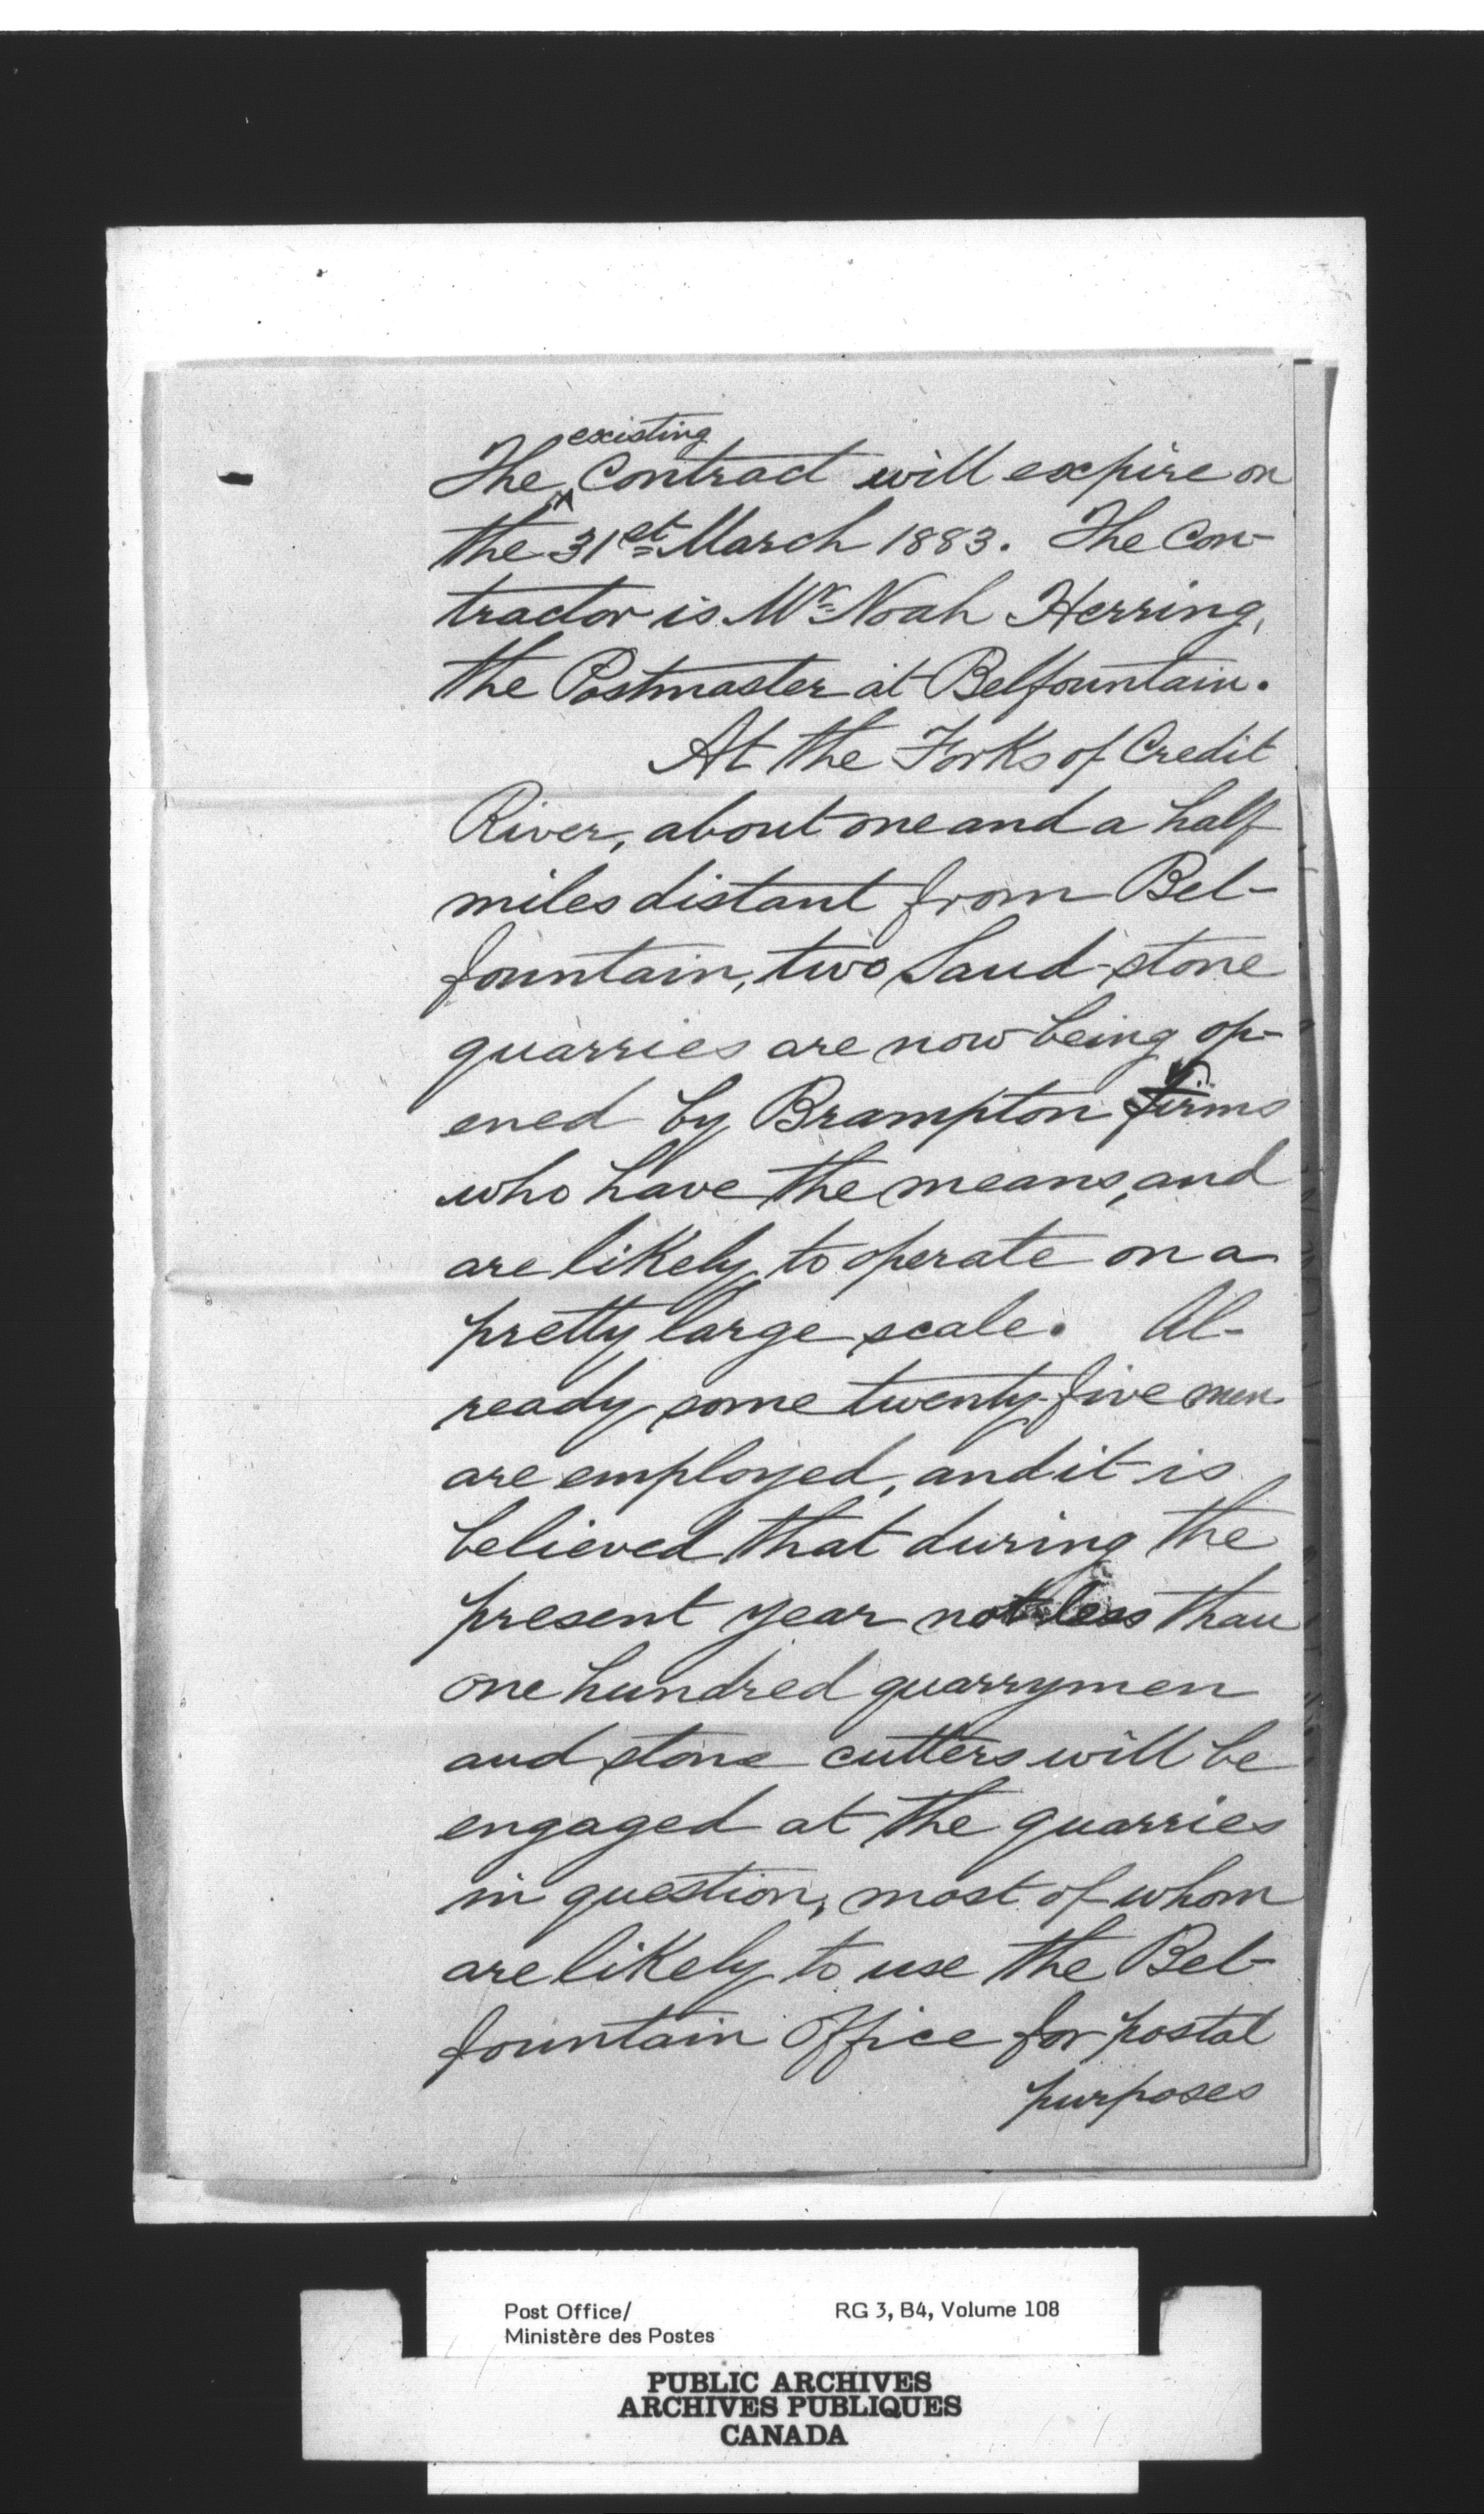 existing
The ^ Contract will expire on
the 31st March 1883. The Con-
tractor is Mr. Noah Herring,
the Postmaster at Belfountain.
At the Forks of Credit
River, about one and a half
miles distant from Bel-
fountain, two Sand-stone
quarries are now being op-
ened by Brampton firms
who have the means, and
are likely to operate on a
pretty large scale. Al-
ready some twenty-five men
are employed, and it is
believed that during the
present year not less than
one hundred quarrymen
and stone cutters will be
engaged at the quarries
in question, most of whom
are likely to use the Bel-
fountain Office for postal
purposes
Post Office/ RG 3, B4, Volume 108
Ministère des Postes
PUBLIC ARCHIVES
ARCHIVES PUBLIQUES
CANADA